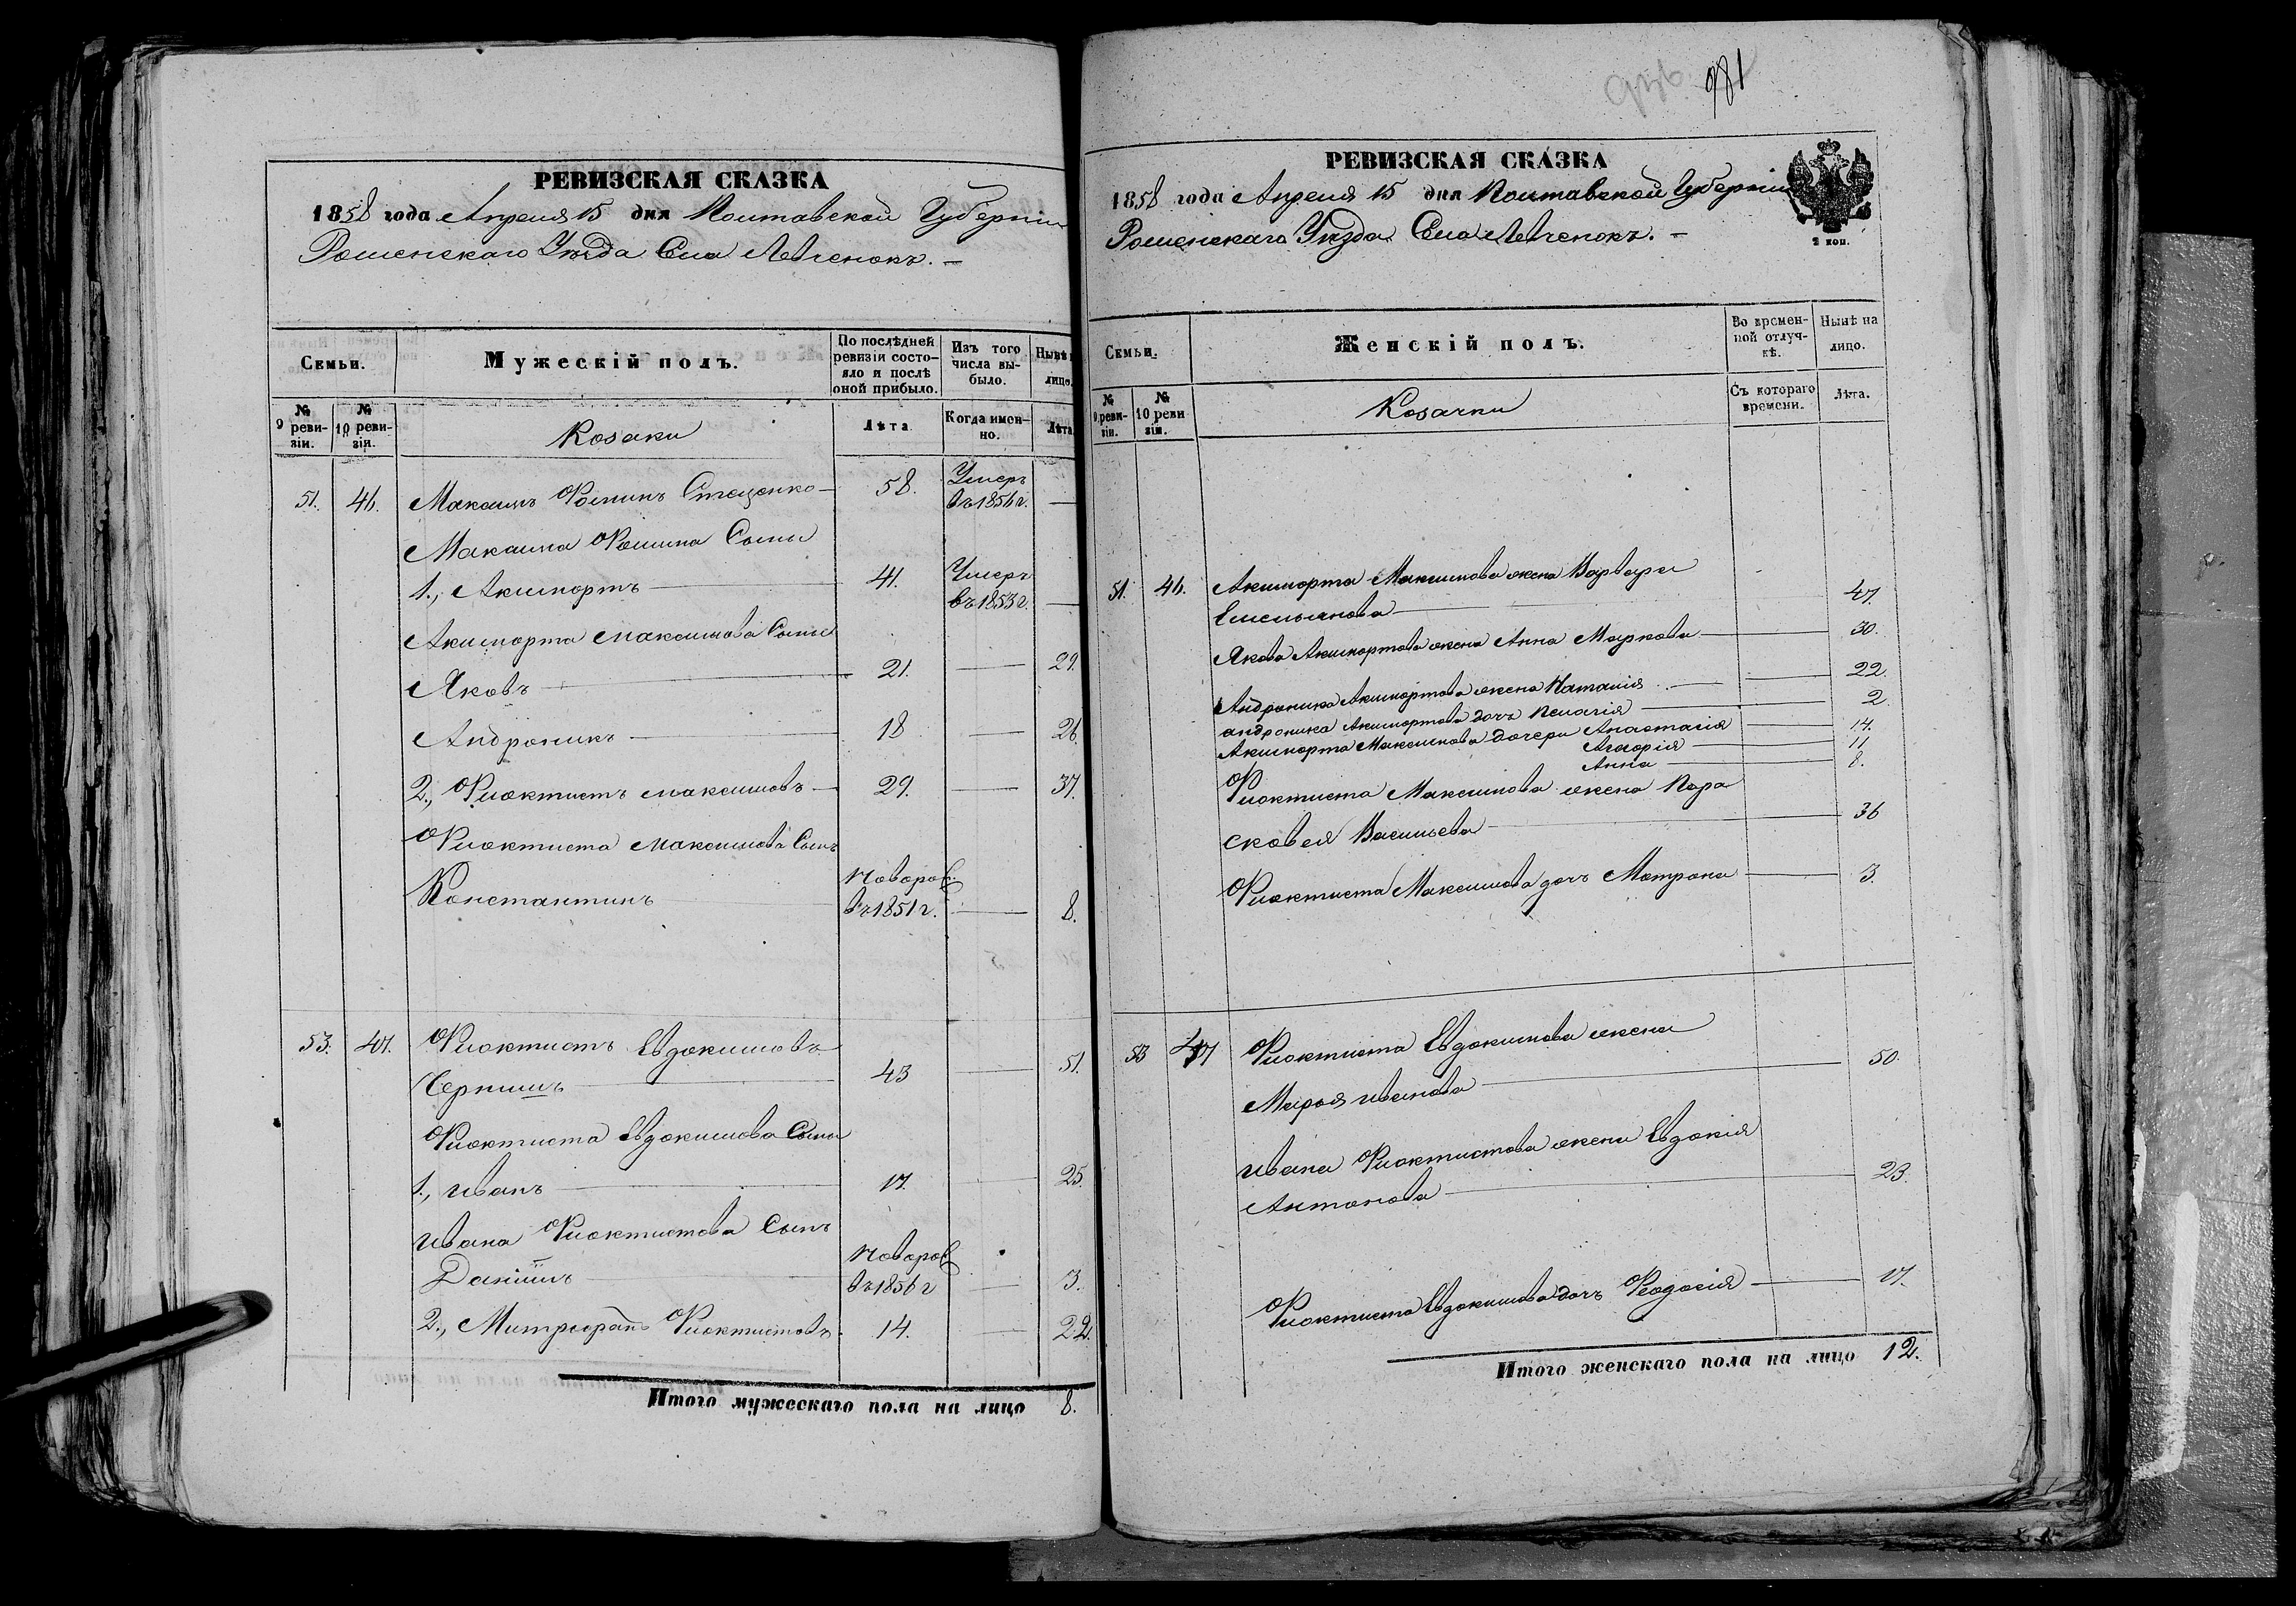 РЕВИЗСКАЯ СКАЗКА
1858 года Апреля 15 дня Полтавской Губерніи
Роменскаго Уѣзда Села
Семьи.
Мужескій полъ.
По послѣдней ревизіи состояло и послѣ оной прибыло.
Изъ того числа выбыло.
Нынѣ
лицо.
№ 9 ревизіи.
№ 10 ревизіи.
Козаки
Лѣта
Когда именно.
Лѣта
51. 46. Максимъ Фоминъ Стеценко 58. Умеръ въ 1856 г. —
Максима Фомина Сыны
1., 41. Умеръ въ 1853 г. —
Максимова Сыны
Яковъ 21. — 29.
Андроникъ 18 — 26.
2., Фиоктистъ Максимовъ 29. — 37.
Фиоктиста Максимова Сынъ
Константинъ новорож. въ 1851 г. — 8.
53. 47. Фиоктистъ Евдокимовъ
Чернишъ 43 — 51.
Фиоктиста Евдокимова Сыны
1., Иванъ 17. — 25.
Ивана Фиоктистова Сынъ
Даніилъ новорож въ 1856 г — 3.
2., Митрофанъ Фиоктистовъ 14. — 22.
Итого мужескаго пола на лицо 8.
981
РЕВИЗСКАЯ СКАЗКА
1858 года Апреля 15 дня Полтавской Губерніи
Роменскаго Уѣзда Села
2 коп.
Семьи.
Женскій полъ.
Во временной отлучкѣ.
Нынѣ на лицо.
№ 9 ревизіи.
№ 10 ревизіи.
Козачки
Съ котораго времени.
Лѣта.
51. 46. Максимова жена Варвара
Емельянова — 47.
Якова жена Анна Маркова — 30.
Андроника жена Наталія — 22.
Андроника дочь Пелагія — 2
Максимова дочери Анастасія — 14.
11.
Анна — 8.
Фиоктиста Максимова жена Пара
сковея Васильева — 36
Фиоктиста Максимова дочь Матрона — 3.
53 47 Фиоктиста Евдокимова жена
Марья Иванова — 50.
Ивана Фиоктистова жена Евдокія
Антонова — 23.
Фиоктиста Евдокимова дочь Феодосія — 17.
Итого женскаго пола на лицо 12.